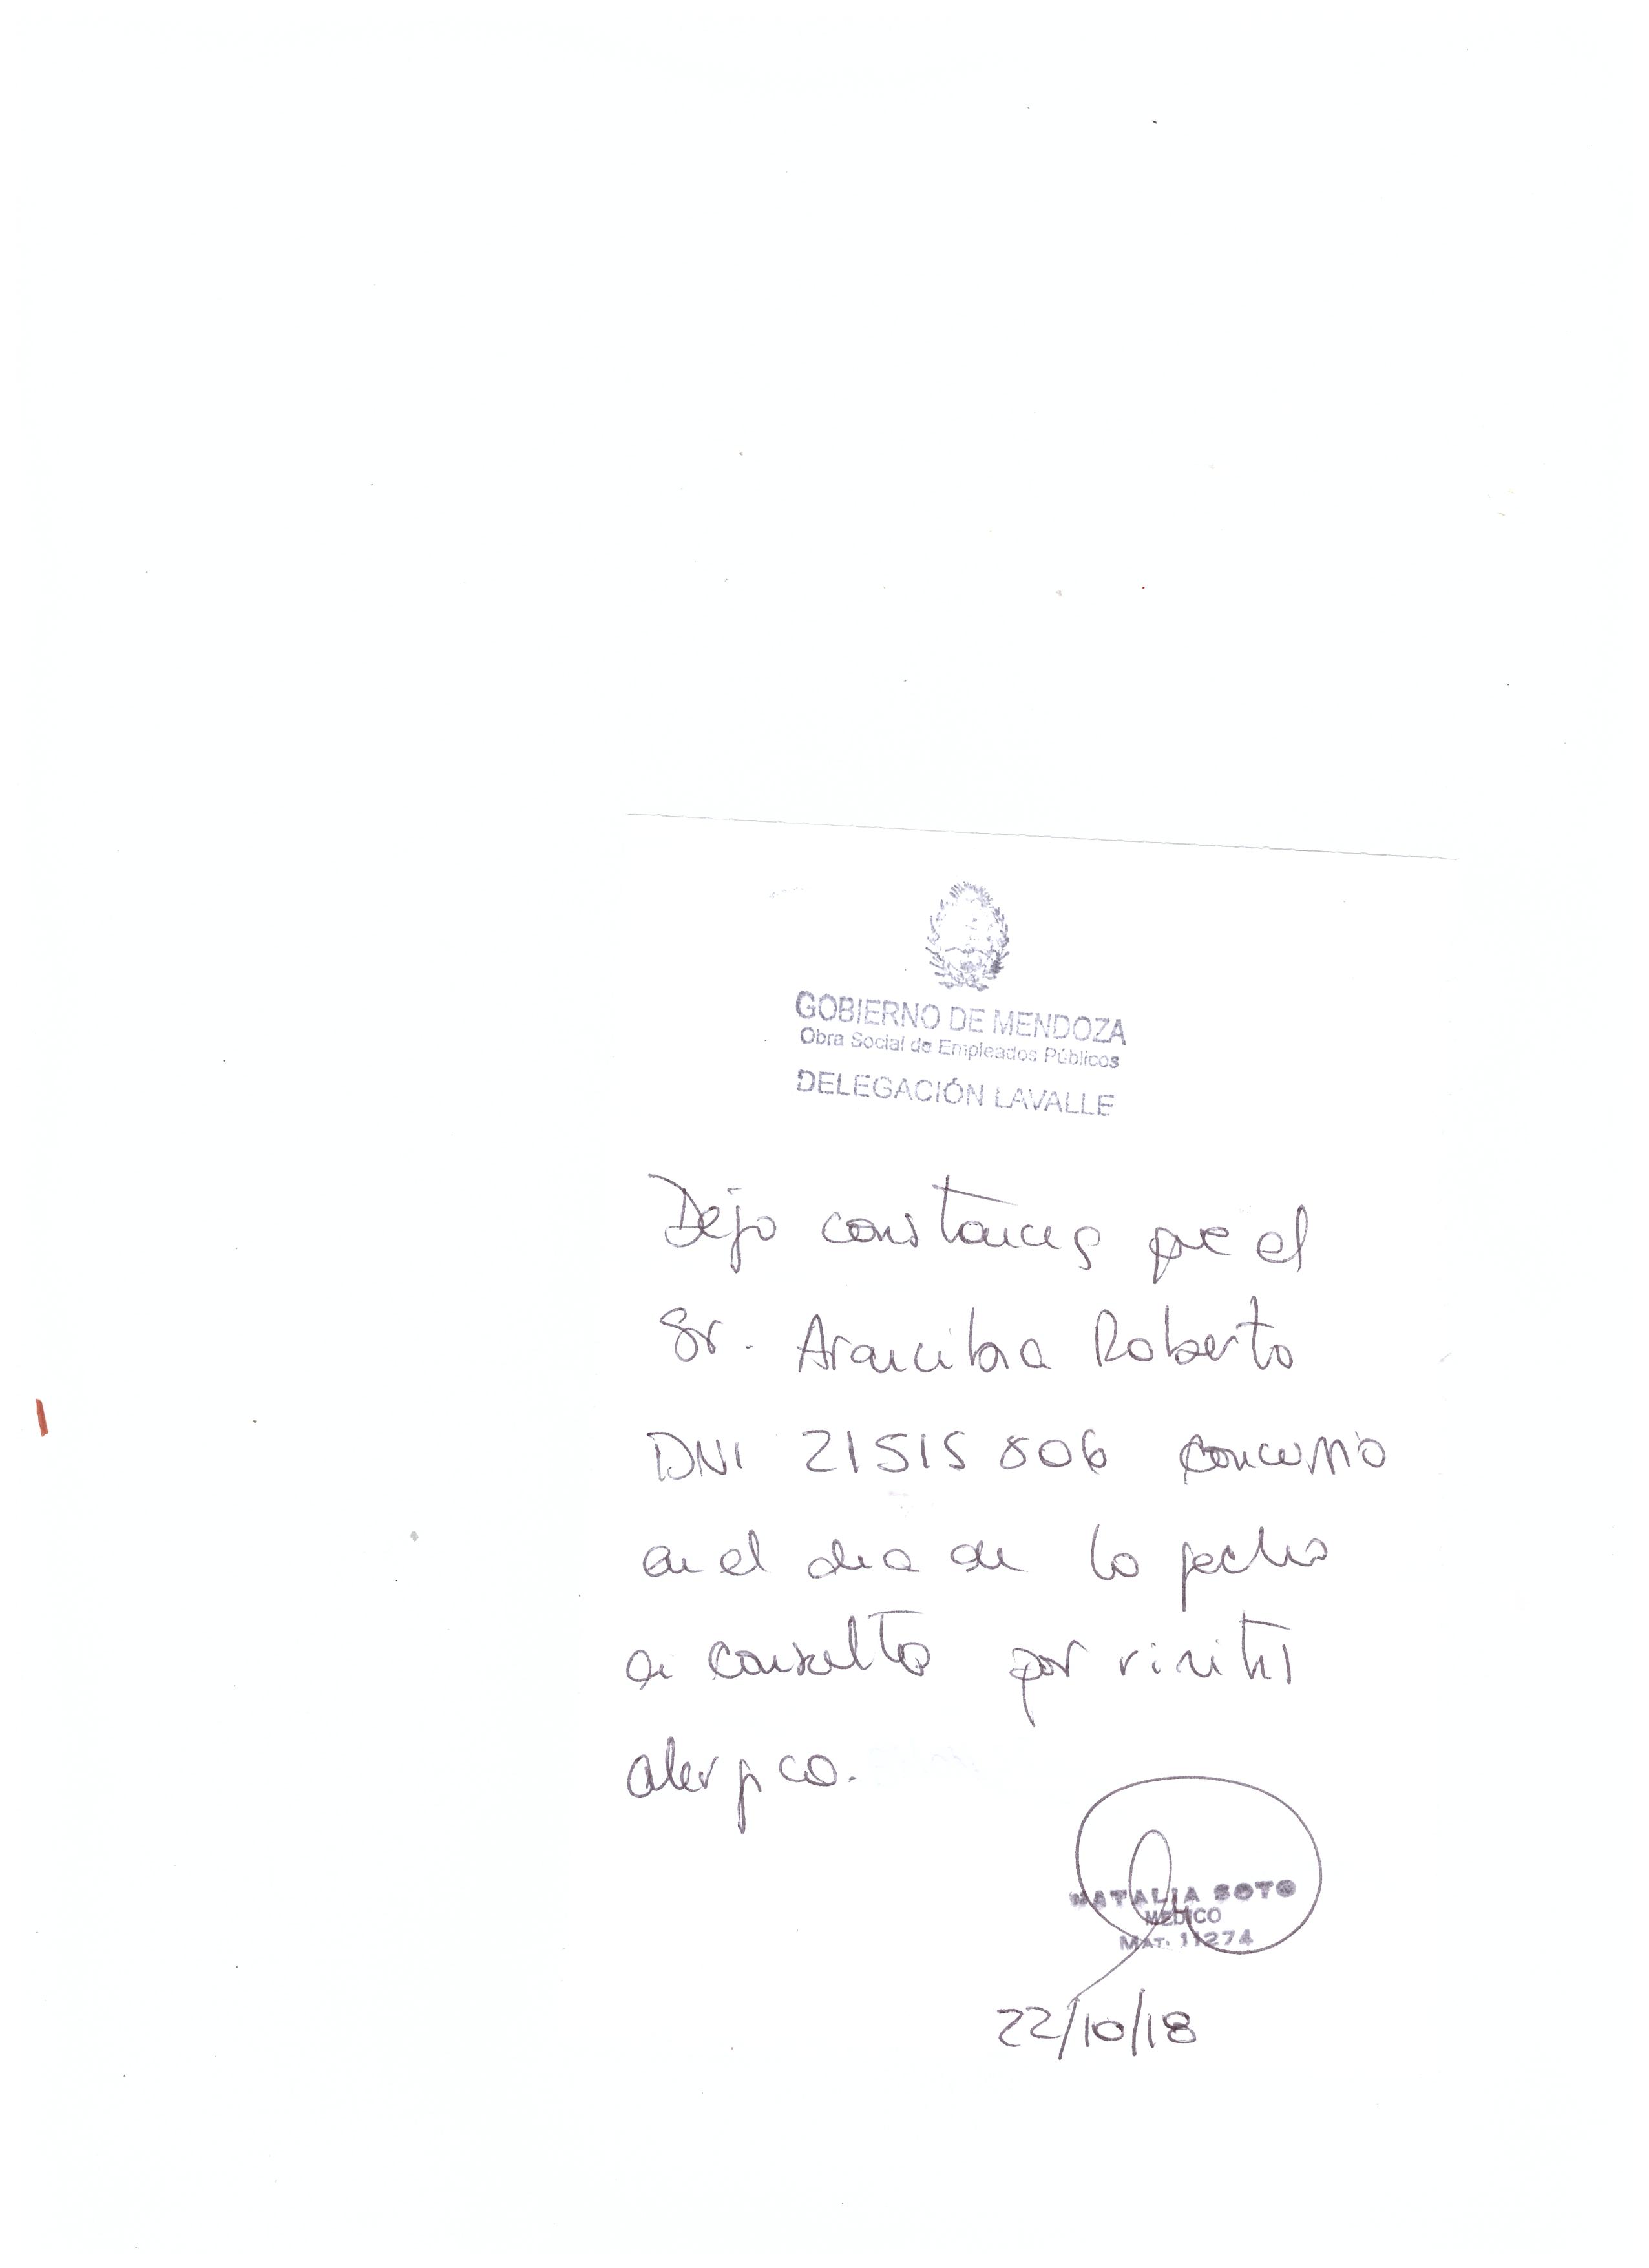 GOBIERNO DE MENDOZA
Obra Social de Empleados Públicos
DELEGACIÓN LAVALLE
Dejo constancia que el
Sr. Arancibia Roberto
DNI 21515806 concurrió
en el dia de la fecha
a consulta por rinitis
alergica.
NATALIA SOTO
MEDICO
MAT. 11274
22/10/18